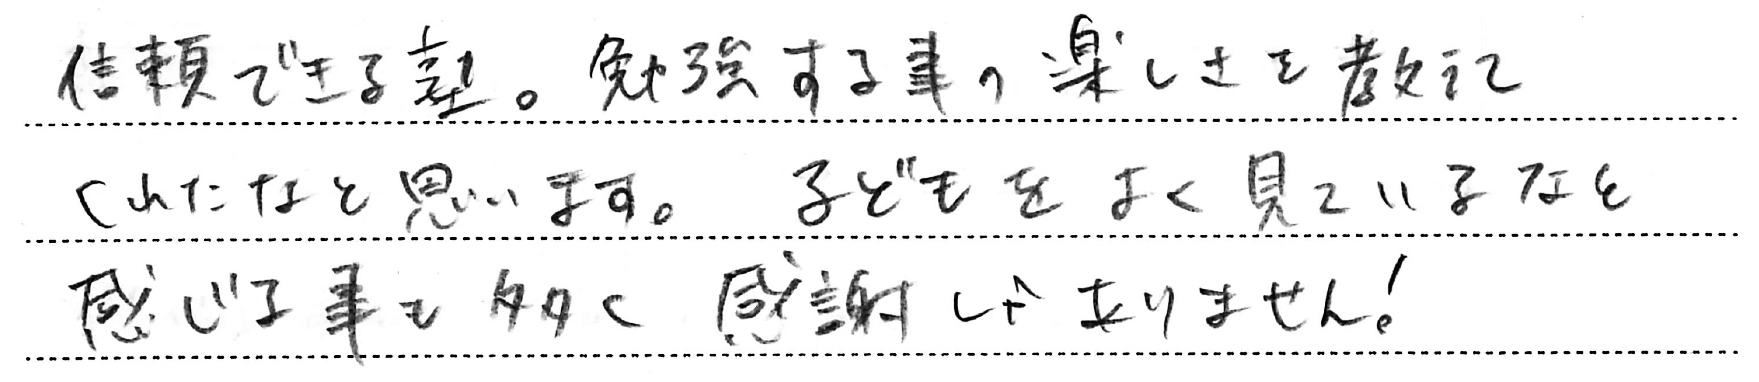 信頼できる塾。勉強する事の楽しさを教えて
くれたなと思います。 子どもをよく見ているなと
感じる事も多く 感謝しかありません!